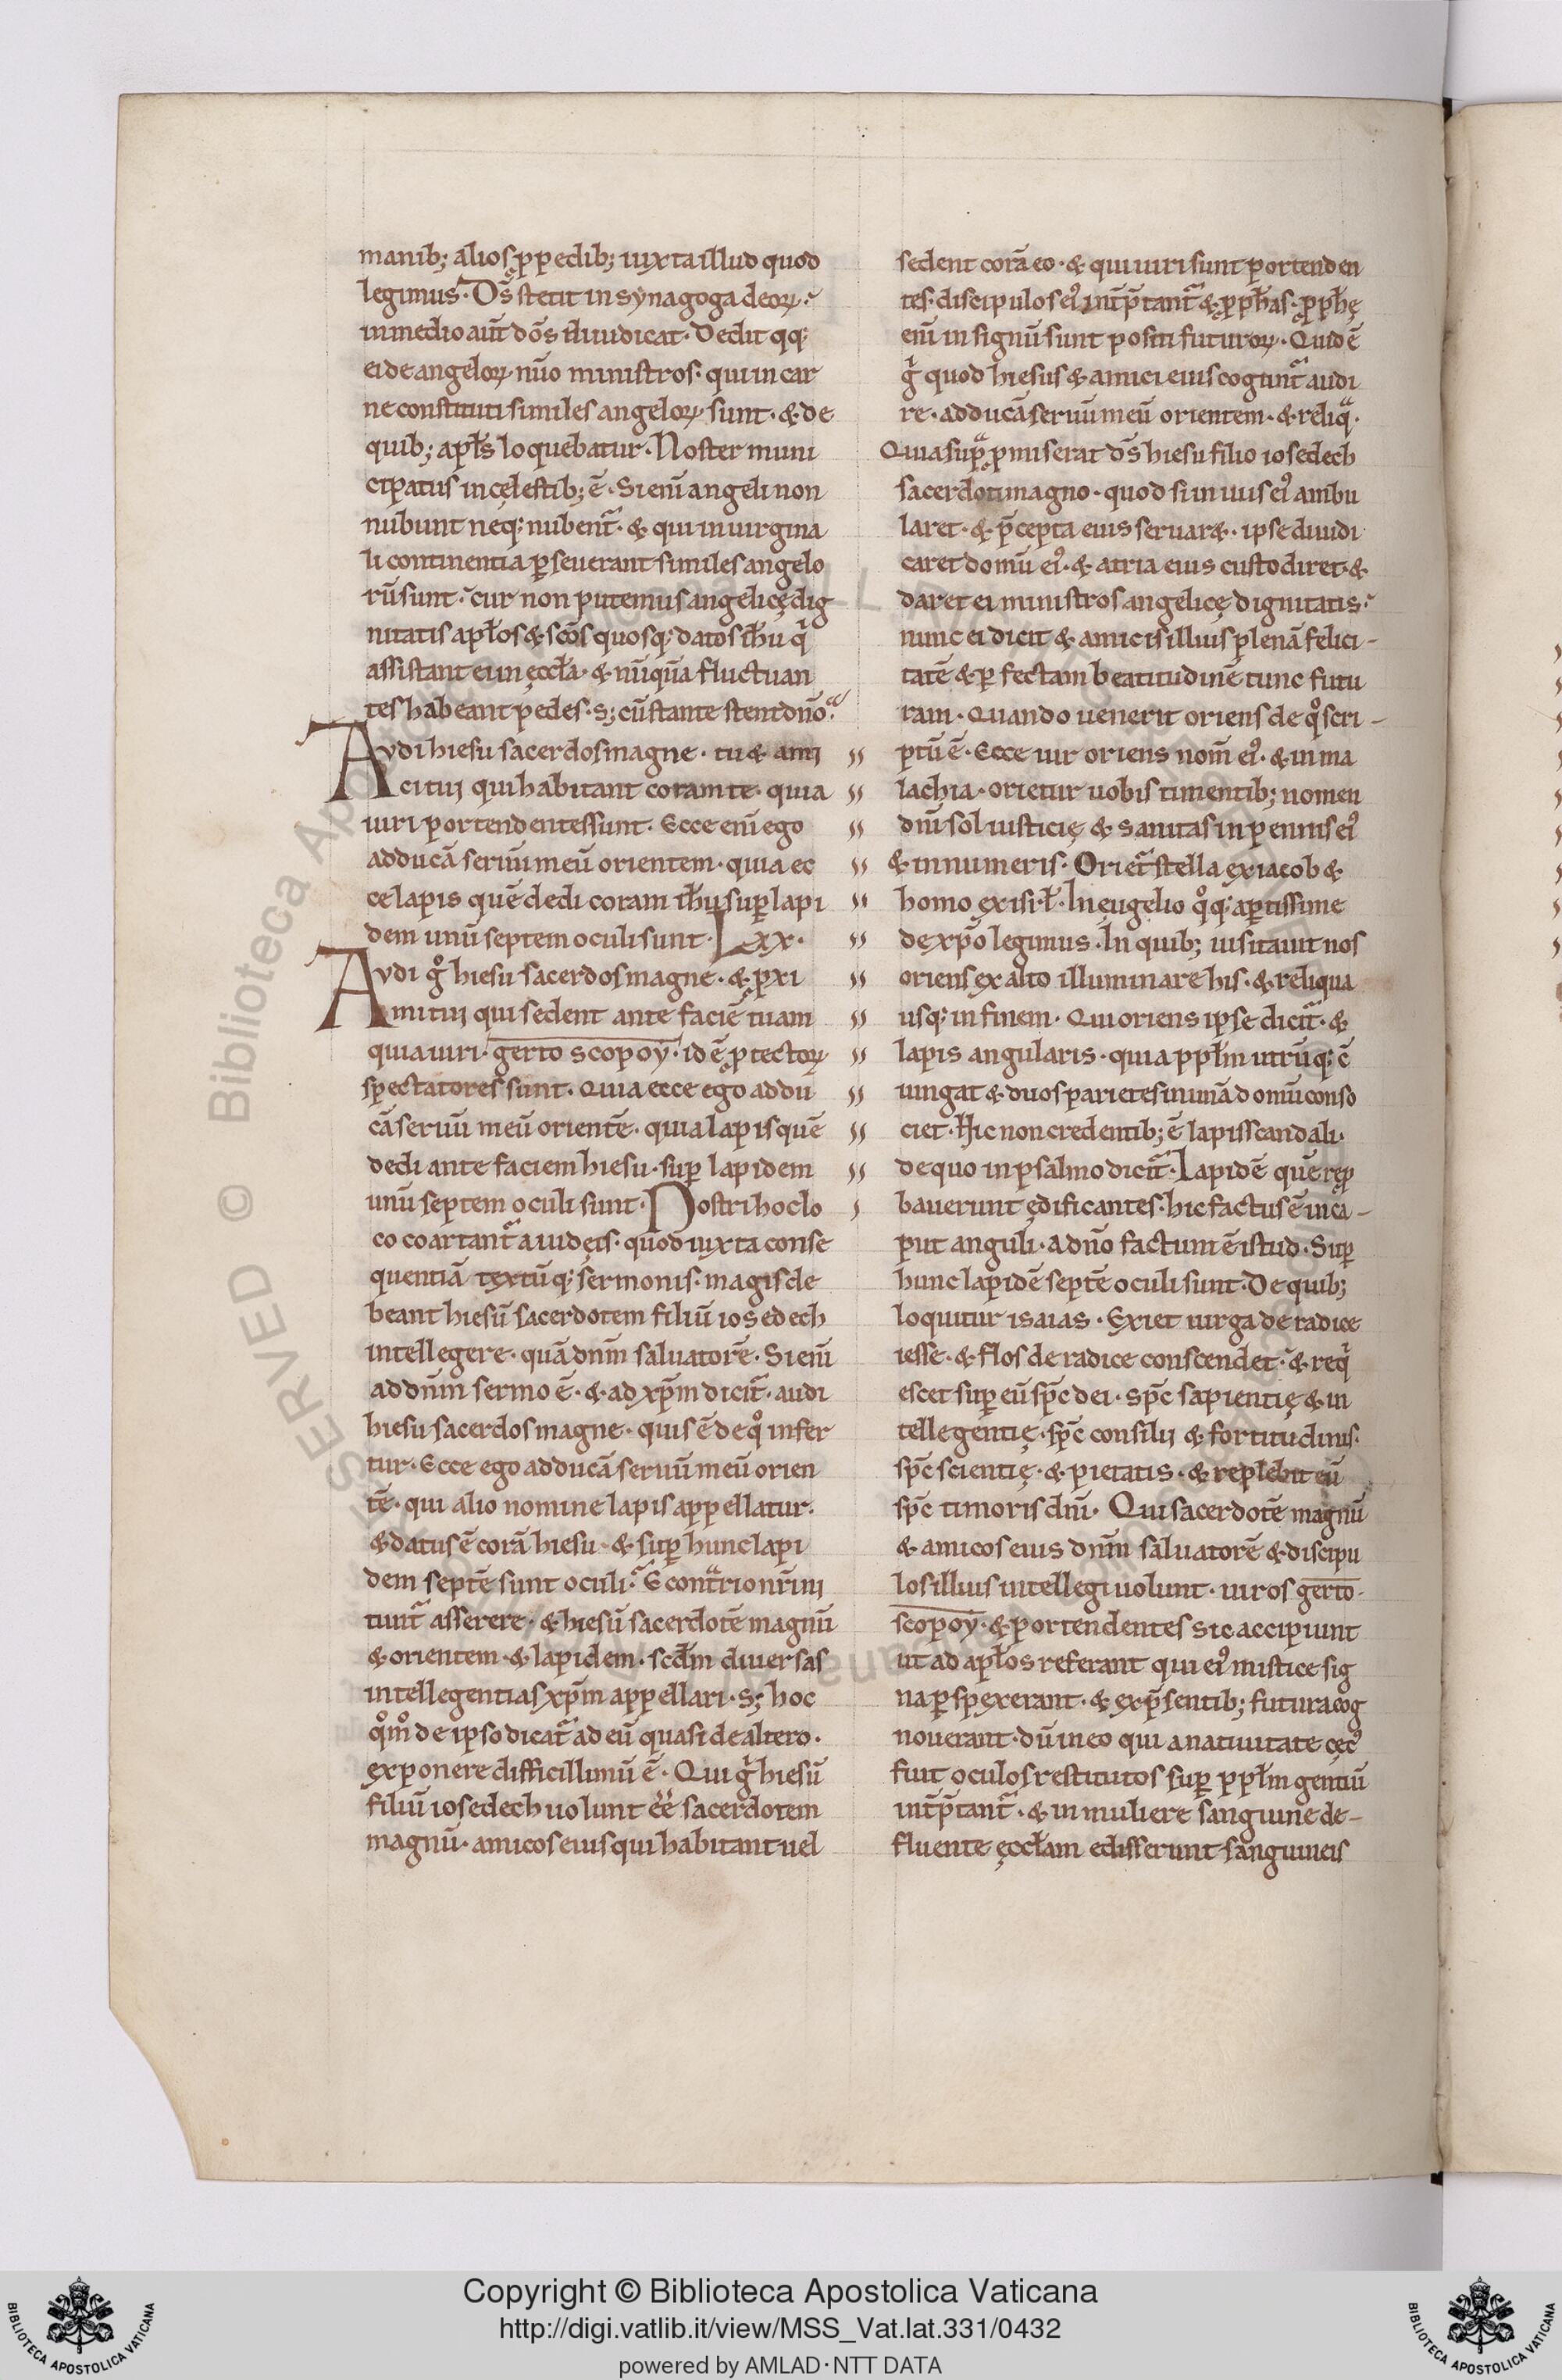 manib; alios ꝓ pedib; iuxta illud quod
legimus. D̅s stetit in synagoga deoꝝ.
in medio aut̅ do̅s diiudicat. Dedit qq;
ei de angeloꝝ nu̅o ministros. qui in car
ne constituti similes angeloꝝ sunt. & de
quib; apl̅s loquebatur. Noster muni
cipatus in cęlestib; e̅. Si eni̅ angeli non
nubunt neq; nubent̃. & qui in uirgina
li continentia ꝑseuerant similes angelo
ru̅ sunt. cur non putemus angelicę dig
nitatis apl̅os & sc̅os quosq; datos ih̅u q̇
assistant ei in ęccl̅a. & nu̅qua̅ fluctuan
tes habeant pedes. s; cu̅ stante stent dn̅o.
Avdi hiesu sacerdos magne. tu & ami
ci tui qui habitant coram te. quia
uiri portendentes sunt. Ecce eni̅ ego
adduca̅ seruu̅ meu̅ orientem. quia ec
ce lapis que̅ dedi coram ih̅u suꝑ lapi
dem unu̅ septem oculi sunt. LXX.
Avdi g̊ hiesu sacerdos magne. & ꝓxi
mi tui qui sedent ante facie̅ tuam
quia uiri. gerto scopoy. id e̅ ꝓtectoꝝ
spectatores sunt. Quia ecce ego addu
ca̅ seruu̅ meu̅ oriente̅. quia lapis que̅
dedi ante faciem hiesu. suꝑ lapidem
unu̅ septem oculi sunt. Nostri hoc lo
co coartant̃ a iudęis. quod iuxta conse
quentia̅ textu̅q; sermonis. magis de
beant hiesu̅ sacerdotem filiu̅ iosedech
intellegere. qua̅ dn̅m saluatore̅. Si eni̅
ad dn̅m sermo e̅. & ad xp̅m dicit̃. audi
hiesu sacerdos magne. quis e̅ de q̊ infer
tur. Ecce ego adduca̅ seruu̅ meu̅ orien
te̅. qui alio nomine lapis appellatur.
& datus e̅ cora̅ hiesu. & suꝑ hunc lapi
dem septe̅ sunt oculi. E contrario nr̅i ni
tunt̃ asserere. & hiesu̅ sacerdote̅ magnu̅
& orientem. & lapidem. scd̅m diuersas
intellegentias xp̅m appellari. s; hoc
q̊m̊ de ipso dicat̃ ad eu̅ quasi de altero.
exponere difficillimu̅ e̅. Qui g̊ hiesu̅
filiu̅ iosedech uolunt ee̅ sacerdotem
magnu̅. amicos eius qui habitant uel
sedent cora̅ eo. & qui uiri sunt portenden
tes. discipulos ei᾽ int̅p̅tant̃ & ꝓph̅as. ꝓph̅ę
eni̅ in signu̅ sunt positi futuroꝝ. Quid e̅
g̊ quod hiesus & amici eius cogunt̃ audi
re. adduca̅ seruu̅ meu̅ orientem. & reliq̃.
Quia supᵃ ꝓmiserat d̅s hiesu filio iosedech
sacerdoti magno. quod si in uiis ei᾽ ambu
laret. & p̅cepta eius seruar&. ipse diiudi
caret domu̅ ei᾽. & atria eius custodiret. &
daret ei ministros angelicę dignitatis.
nunc ei dicit & amicis illius plena̅ felici-
tate̅ & ꝑfectam beatitudine̅ tunc futu
ram. Quando uenerit oriens de q̊ scri-
ptu̅ e̅. Ecce uir oriens nom̅ ei᾽. & in ma
lachia. orietur uobis timentib; nomen
dn̅i sol iusticię & sanitas in pennis ei᾽
& in numeris. Oriet̃ stella ex iacob &
homo ex isr̅l. In eugelio q̊q; aꝑtissime
de xp̅o legimus. In quib; uisitauit nos
oriens ex alto illuminare his. & reliqua
usq; in finem. Qui oriens ipse dicit̃. &
lapis angularis. quia ppl̅m utru̅q; c̅
iungat & duos parietes in una̅ domu̅ conso
ciet. Hic non credentib; e̅ lapis scandali.
de quo in psalmo dicit̃. Lapide̅ que̅ reꝓ
bauerunt ędificantes. hic factus e̅ in ca-
put anguli. a dn̅o factum e̅ istud. Suꝑ
hunc lapide̅ septe̅ oculi sunt. De quib;
loquitur isaias. Exiet uirga de radice
iesse. & flos de radice conscendet. & req̇
escet suꝑ eu̅ sp̅c dei. sp̅c sapientię & in
tellegentię. sp̅c consilii & fortitudinis.
sp̅c scientię. & pietatis. & replebit eu̅
sp̅c timoris dn̅i. Qui sacerdote̅ magnu̅
& amicos eius dn̅m saluatore̅ & discipu
los illius intellegi uolunt. uiros gerto
scopoy. & portendentes sic accipiunt
ut ad apl̅os referant qui ei᾽ mistice sig
na ꝑspexerant. & ex p̅sentib; futura cog
nouerant. du̅ in eo qui a natiuitate cęc᾽
fuit oculos restitutos suꝑ ppl̅m gentiu̅
int̅p̅tant̃. & in muliere sanguine de-
fluente ęccl̅am edisserunt sanguineis
Copyright © Biblioteca Apostolica Vaticana
http://digi.vatlib.it/view/MSS_Vat.lat.331/0432
powered by AMLAD · NTT DATA
BIBLIOTECA APOSTOLICA VATICANA
BIBLIOTECA APOSTOLICA VATICANA